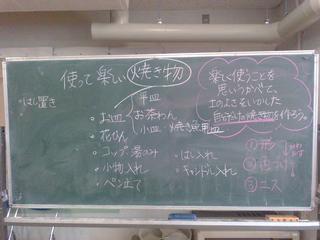 使って楽しい焼き物
・はし置き
平皿
・お皿 お茶わん
小皿 焼き魚用皿
・花びん
・コップ 湯のみ
・小物入れ
・ペン立て
・はし入れ
・キャンドル入れ
楽しく使うことを
思いうかべて、
土のよさをいかした
焼き物を作ろう。
① 形
②
③ ニス